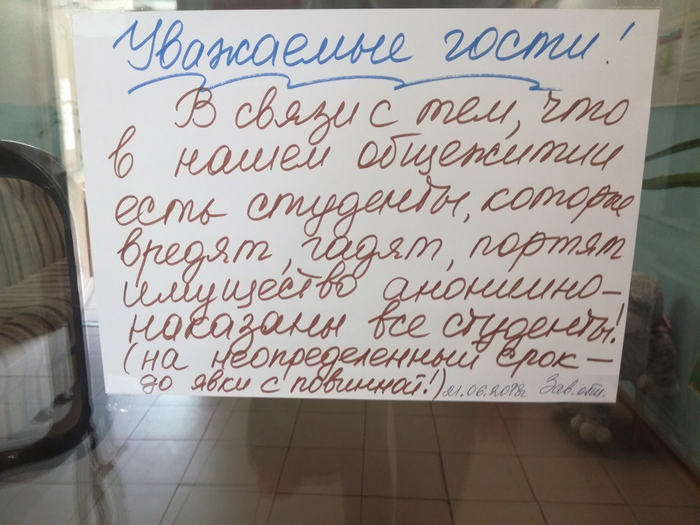 Уважаемые гости!
В связи с тем, что
в нашем общежитии
есть студенты, которые
вредят, гадят, портят
имущество анонимно-
наказаны все студенты!
(на неопределенный срок –
до явки с повинной!) 21.06.2018г Зав. общ.